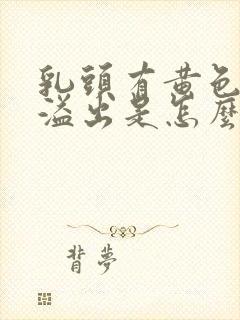 乳頭有黃色
溢出是怎麼
背夢